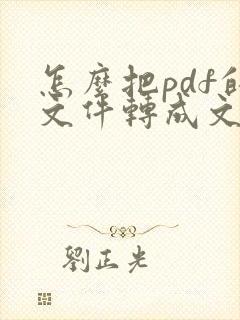 怎麼把pdf的
文件轉成文
劉正光